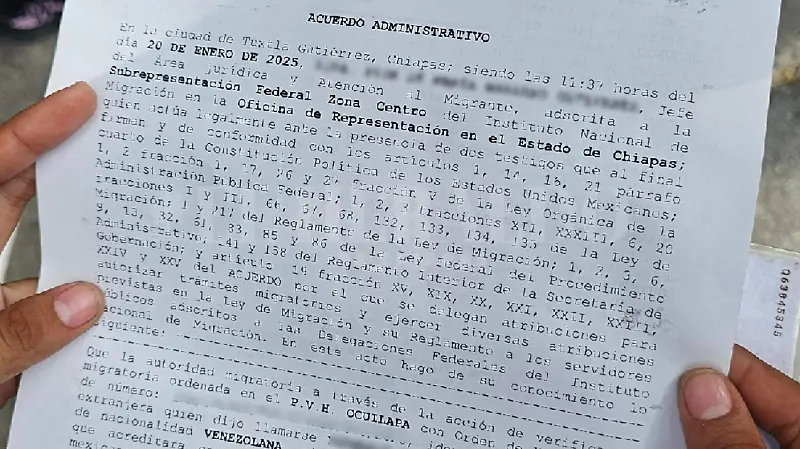 ACUERDO ADMINISTRATIVO
En la ciudad de Tuxtla Gutiérrez, Chiapas; siendo las 11:37 horas del
día 20 DE ENERO DE 2025, Jefe
del Área jurídica y Atención al Migrante, adscrita a la
Subrepresentación Federal Zona Centro del Instituto Nacional de
Migración en la Oficina de Representación en el Estado de Chiapas;
quien actúa legalmente ante la presencia de dos testigos que al final
firman y de conformidad con los artículos 1, 14, 16, 21 párrafo
cuarto de la Constitución Política de los Estados Unidos Mexicanos;
1, 2 fracción 1, 17, 26 y 27 fracción V de la Ley Orgánica de la
Administración Pública Federal; 1, 2, 3 fracciones XII, XXXIII, 6, 20
fracciones I y III, 66, 67, 68, 132, 133, 134, 135 de la Ley de
Migración; 1 y del Reglamento de la Ley de Migración; 1, 2, 3, 6,
9, 13, 32, 83, 85 y 86 de la Ley Federal del Procedimiento
Administrativo; 141 y 158 del Reglamento Interior de la Secretaría de
Gobernación; y artículo 19 fracción XV, XIX, XX, XXI, XXII, XXIII,
XXIV y XXV del ACUERDO por el que se delegan atribuciones para
autorizar trámites migratorios y ejercer diversas atribuciones
previstas en la Ley de Migración y su Reglamento a los servidores
públicos adscritos a las Delegaciones Federales del Instituto
Nacional de Migración. En este acto hago de su conocimiento lo
siguiente:
Que la autoridad migratoria a través de la acción de
migratoria ordenada en el P.V.H. OCUILAPA con Orden de
de número:
extranjera quien dijo llamarse
de nacionalidad VENEZOLANA
que acreditara